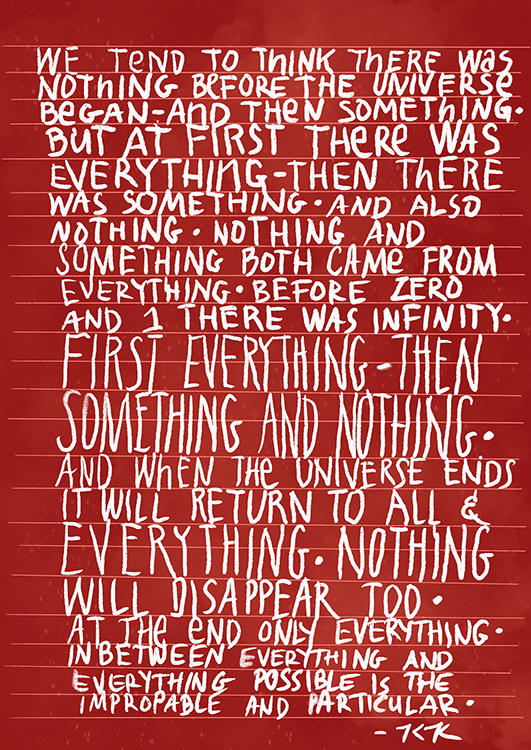 WE TEND TO THINK THERE WAS
NOTHING BEFORE THE UNIVERSE
BEGAN-AND THEN SOMETHING.
BUT AT FIRST THERE WAS
EVERYTHING-THEN THERE
WAS SOMETHING. AND ALSO
NOTHING. NOTHING AND
SOMETHING BOTH CAME FROM
EVERYTHING. BEFORE ZERO
AND 1 THERE WAS INFINITY.
FIRST EVERYTHING-THEN
SOMETHING AND NOTHING.
AND WHEN THE UNIVERSE ENDS
IT WILL RETURN TO ALL &
EVERYTHING. NOTHING
WILL DISAPPEAR TOO.
AT THE END ONLY EVERYTHING.
INBETWEEN EVERYTHING AND
EVERYTHING POSSIBLE IS THE
IMPROPABLE AND PARTICULAR.